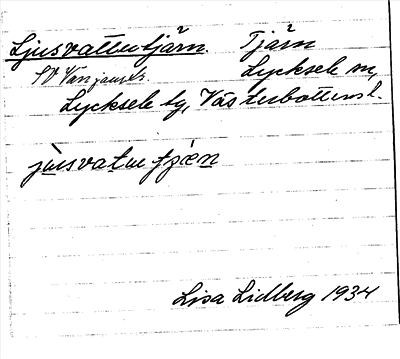 Ljusvattutjärn. Tjärn
SV Vänjaurtr. Lycksele sn,
Lycksele tg, Västerbottensl.
jusvatu tjæn
Lisa Lidberg 1934